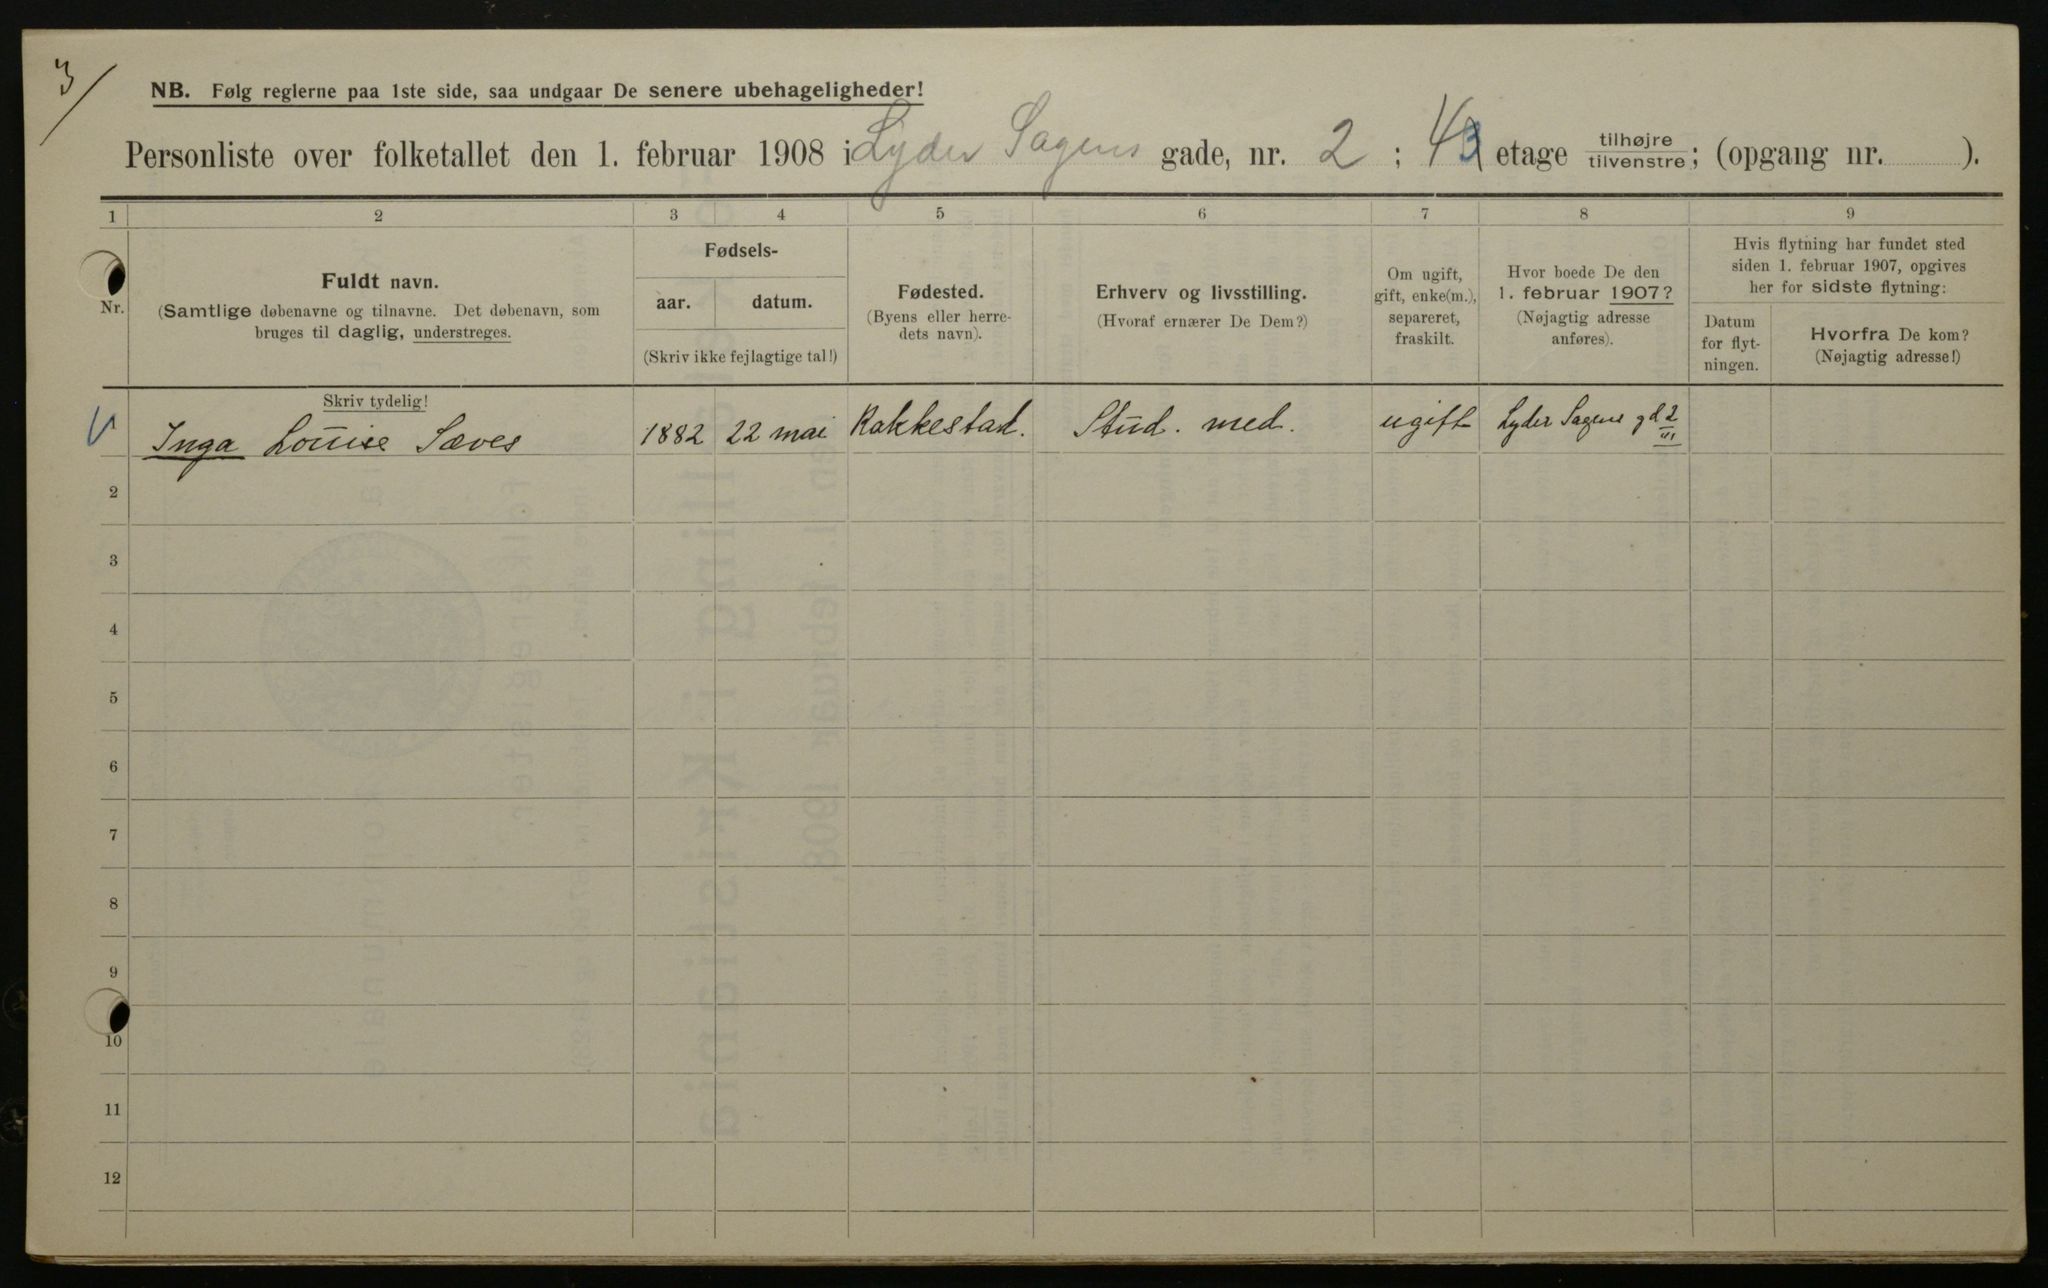 3/
NB. Følg reglerne paa 1ste side, saa undgaar De senere ubehageligheder!
Personliste over folketallet den 1. februar 1908 i Lyder Sagens gade, nr. 2 ; 3 etage tilhøjre tilvenstre; (opgang nr. ).
1 2 3 4 5 6 7 8 9
Nr.
Fuldt navn.
(Samtlige døbenavne og tilnavne. Det døbenavn, som
bruges til daglig, understreges.
Fødsels-
aar. datum.
(Skriv ikke fejlagtige tal!)
Fødested.
(Byens eller herre-
dets navn).
Erhverv og livsstilling.
(Hvoraf ernærer De Dem?)
Om ugift,
gift, enke(m.),
separeret,
fraskilt.
Hvor boede De den
1. februar 1907?
(Nøjagtig adresse
anføres).
Hvis flytning har fundet sted
siden 1. februar 1907, opgives
her for sidste flytning:
Datum
for flyt-
ningen.
Hvorfra De kom?
(Nøjagtig adresse!)
Skriv tydelig!
Inga Louise Sæves 1882 22 mai Rakkestad. Stud. med. ugift Lyder Sagens gd 2 III
2
3
4
5
6
7
8
9
10
11
12